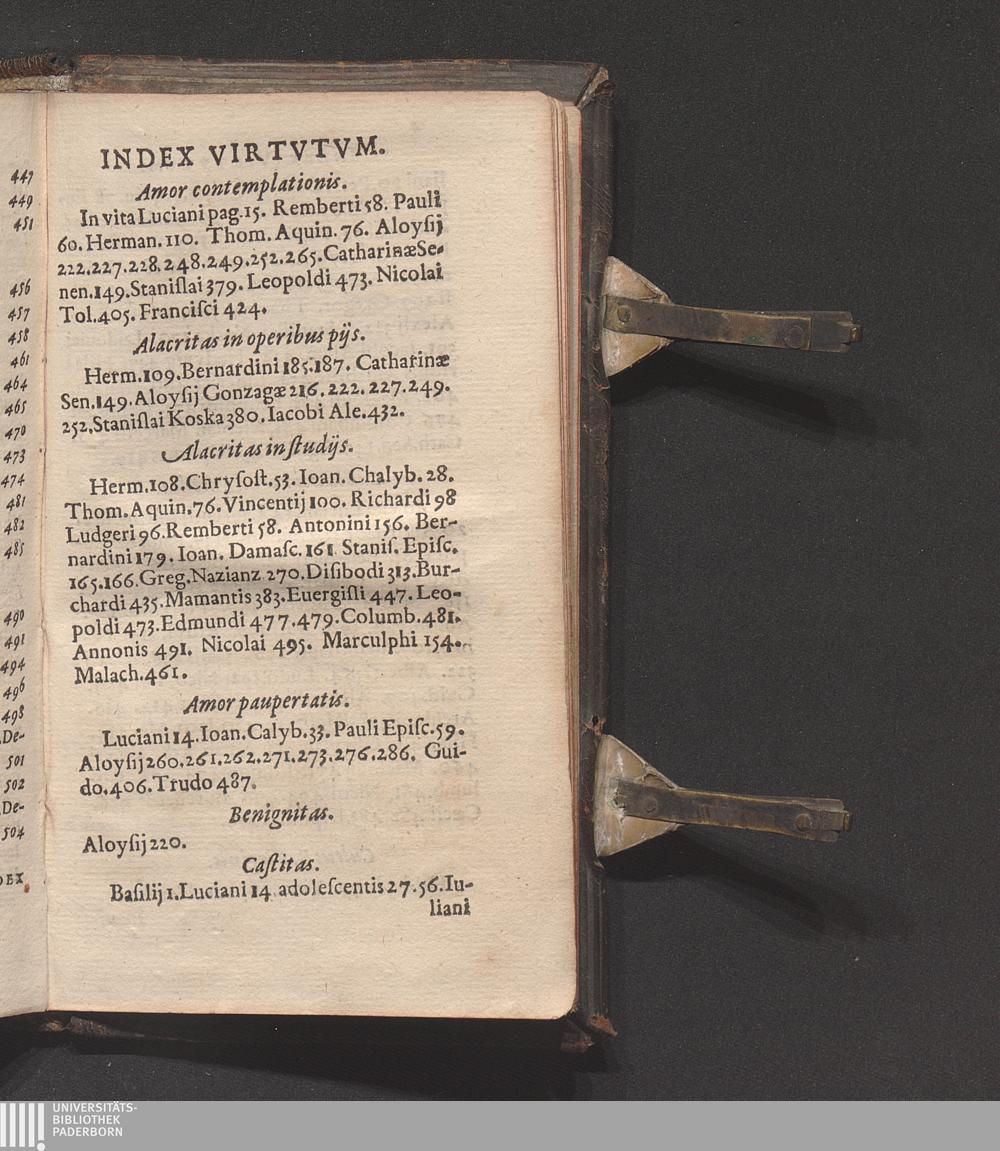 447
449
451
456
457
458
461
464
465
470
473
474
481
482
485
490
491
494
496
498
De-
501
502
De-
504
DEX
INDEX VIRTVTVM.
Amor contemplationis.
In vita Luciani pag. 15. Remberti 58. Pauli
60. Herman. 110. Thom. Aquin. 76. Aloyſij
222.227.228.248.249.252.265. Catharinæ Se-
nen. 149. Staniſlai 379. Leopoldi 473. Nicolai
Tol. 405. Franciſci 424.
Alacritas in operibus pijs.
Herm. 109. Bernardini 185.187. Catharinæ
Sen. 149. Aloyſij Gonzagæ 216. 222. 227. 249.
252. Staniſlai Koska 380. Iacobi Ale. 432.
Alacritas in ſtudijs.
Herm. 108. Chryſoſt. 53. Ioan. Chalyb. 28.
Thom. Aquin. 76. Vincentij 100. Richardi 98
Ludgeri 96. Remberti 58. Antonini 156. Ber-
nardini 179. Ioan. Damaſc. 161 Staniſ. Epiſc.
165.166. Greg. Nazianz 270. Diſibodi 313. Bur-
chardi 435. Mamantis 383. Euergiſli 447. Leo-
poldi 473. Edmundi 477.479. Columb. 481.
Annonis 491. Nicolai 495. Marculphi 154.
Malach. 461.
Amor paupertatis.
Luciani 14. Ioan. Calyb. 33. Pauli Epiſc. 59.
Aloyſij 260.261.262.271.273.276.286. Gui-
do. 406. Trudo 487.
Benignitas.
Aloyſij 220.
Caſtitas.
Baſilij 1. Luciani 14 adoleſcentis 27.56. Iu-
liani
UNIVERSITÄTS-
BIBLIOTHEK
PADERBORN